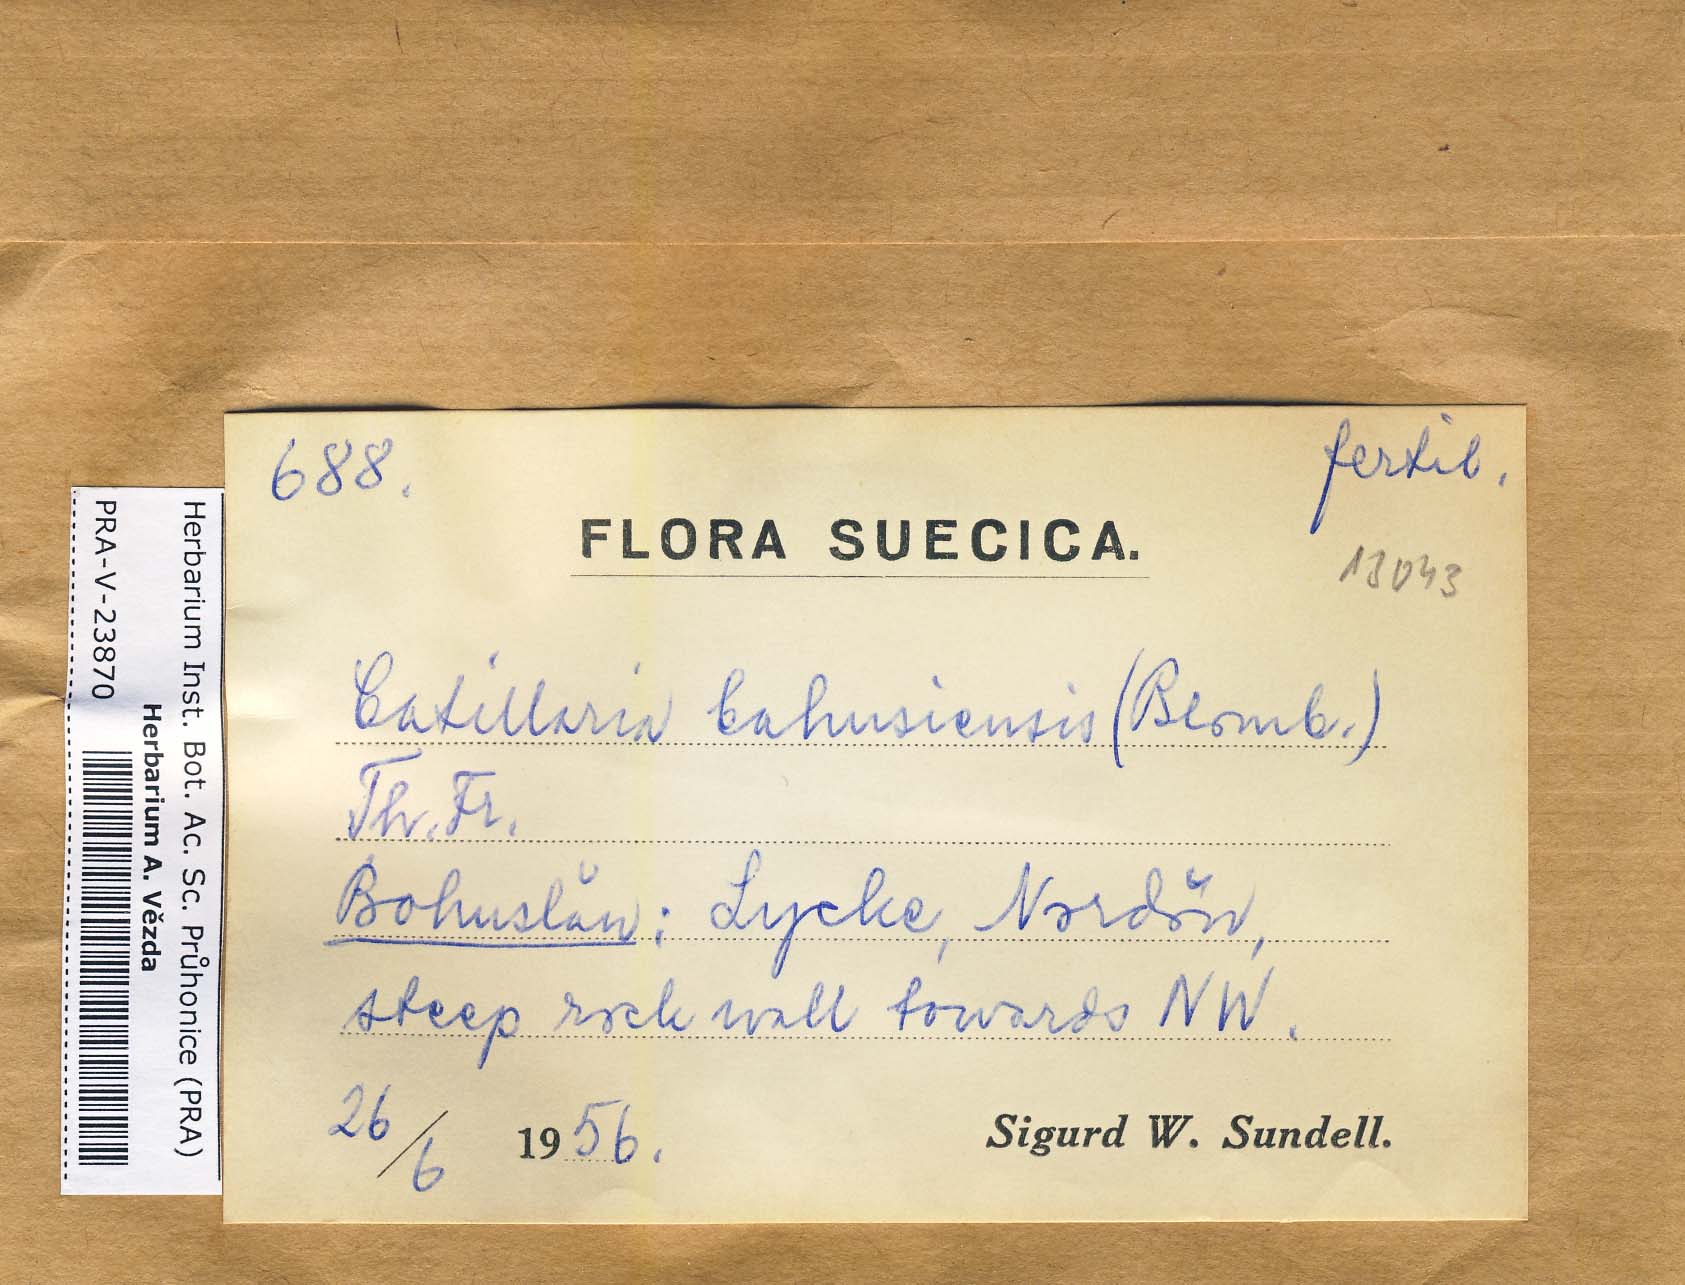 688.
fertil.
FLORA SUECICA.
13043
Catillaria bahusiensis (Blomb.)
Th. Fr.
Bohuslän: Lycke, Nordön,
steep rock wall towards NW.
26/6 1956.
Sigurd W. Sundell.
Herbarium Inst. Bot. Ac. Sc. Průhonice (PRA)
Herbarium A. Vězda
PRA-V-23870